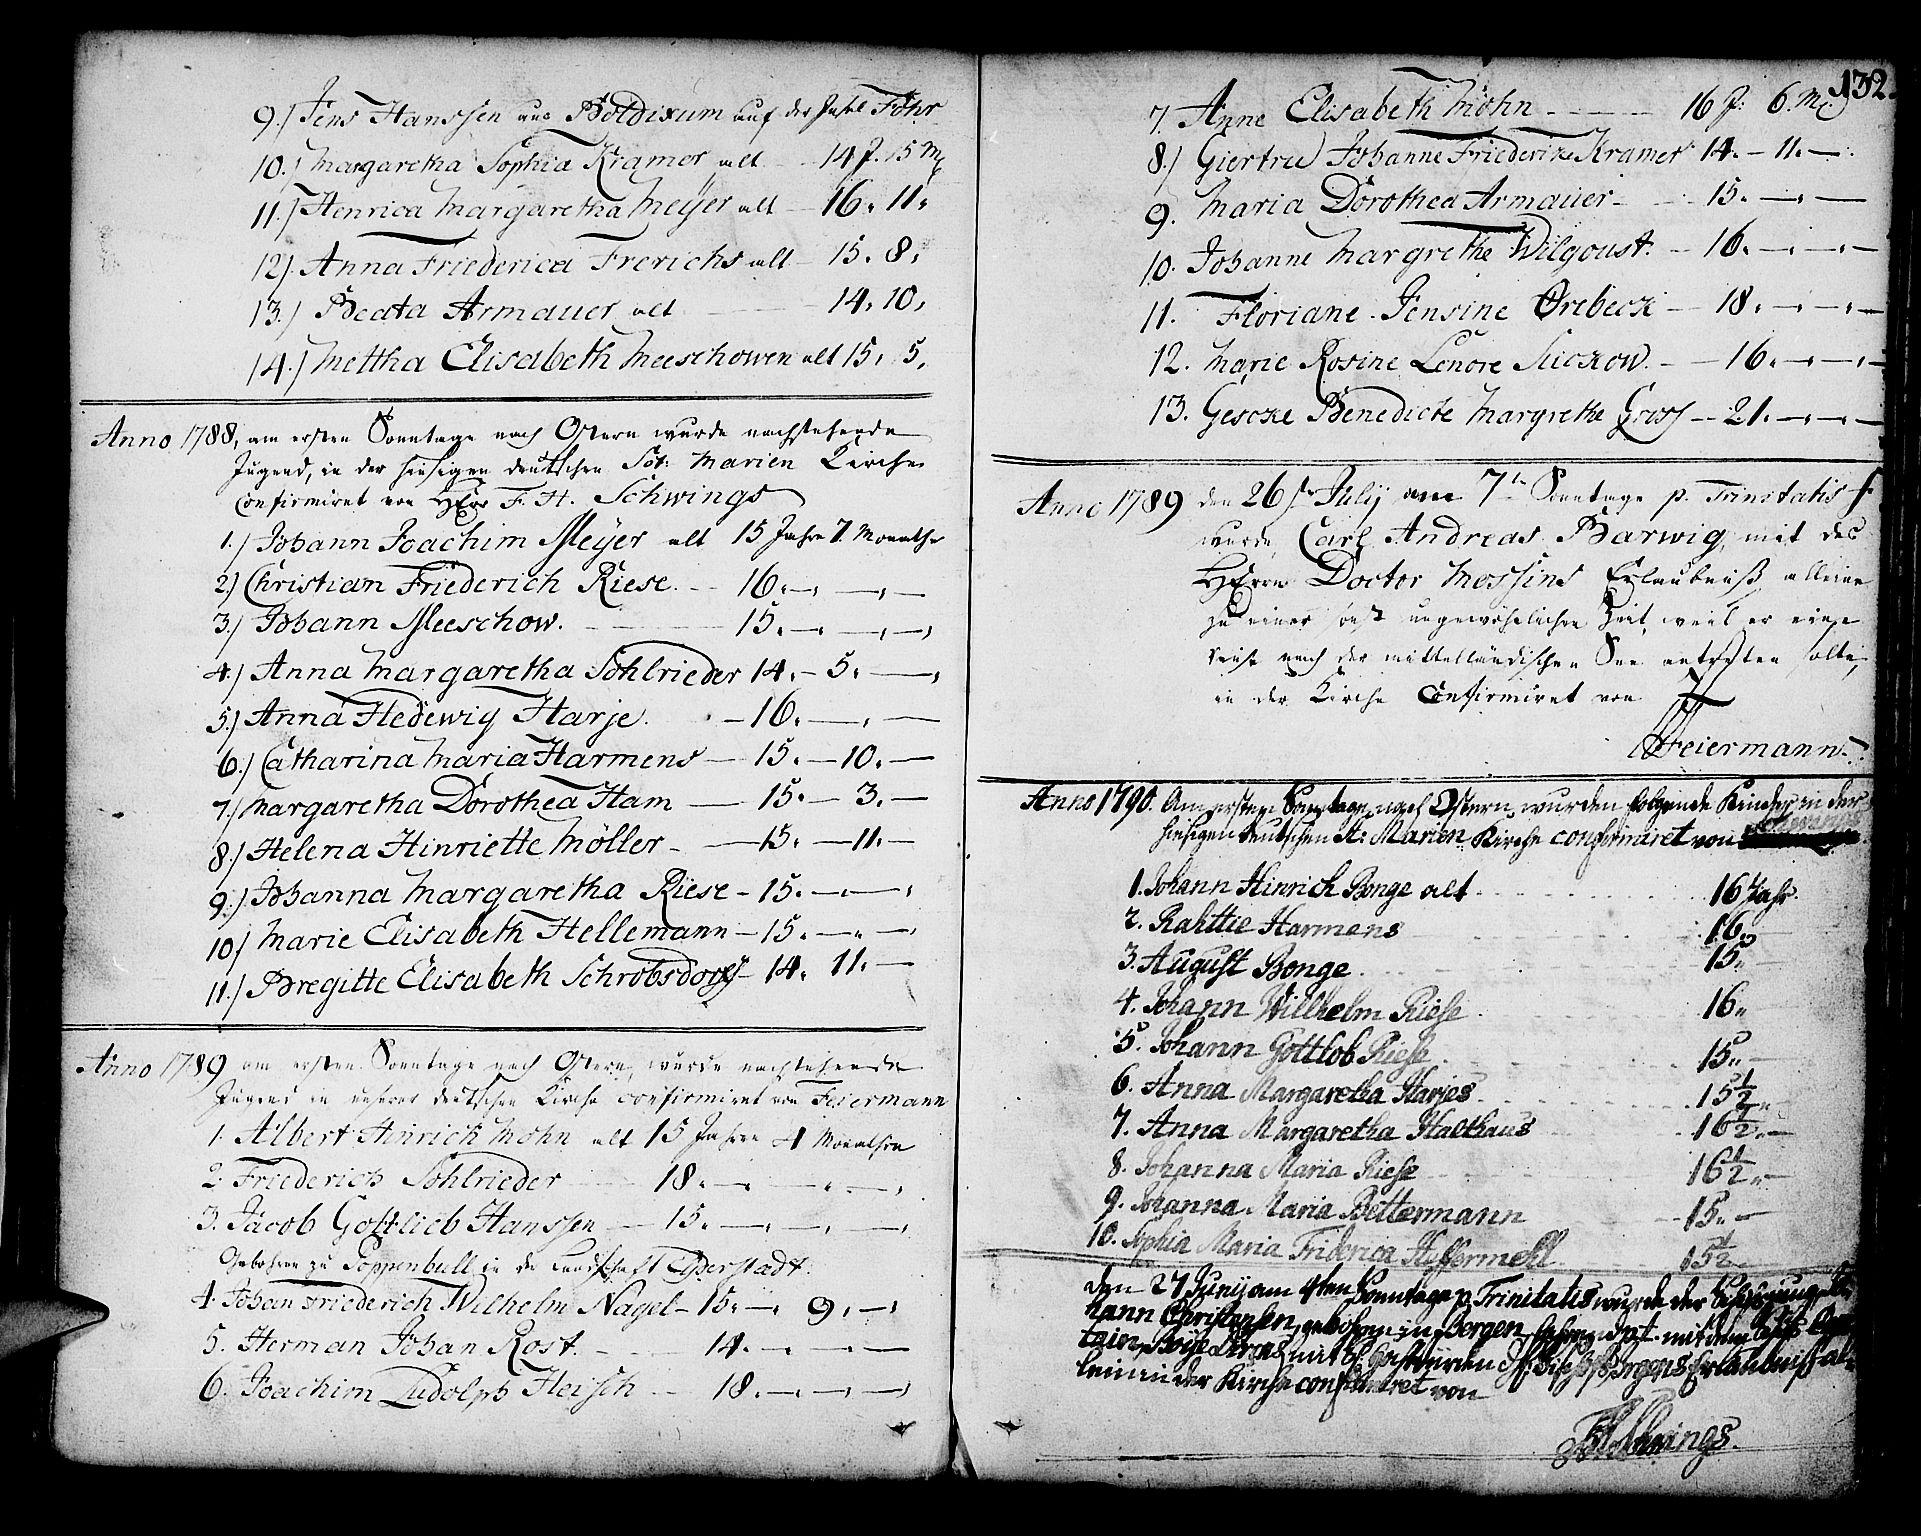 9.) Jens Hanssen aus Boldixum auf der Insel Föhr
10.) Margaretha Sophia Kramer alt 14 J. 5 M
11.) Henrica Margaretha Meÿer alt 16. 11.
12). Anna Friederica Frerichs alt 15. 8.
13.) Beata Armauer alt 14. 10.
14.) Mettha Elisabeth Meeschowen alt 15. 5.
Anno 1788, am ersten Sonntage nach Ostern wurde nachstehende
Jugend, in der hiesigen deutschen Sct: Marien Kirche
confirmiret von Herr F. H. Schwings
1.) Johann Joachim Meÿer alt 15 Jahre 7. Monathe
2.) Christian Friederich Riese. 16. — —
3.) Johann Meeschow. 15. — —
4.) Anna Margaretha Sohlrieder 14. — 5. —
5.) Anna Hedewig Harje. — 16. — —
6.) Catharina Maria Harmens — 15. — 10. —
7.) Margaretha Dorothea Ham — 15. — 3. —
8.) Helena Hinriette Möller — 15. — 11. —
9.) Johanna Margaretha Riese — 15. — —
10) Marie Elisabeth Hellemann — 15. — —
11.) Bregitte Elisabeth Schrobsdorff — 14. 11. —
Anno 1789 am ersten Sonntage nach Ostern, wurde nachstehende
Jugend in unserer deutschen Kirche confirmiret von Feiermann
1. Albert Hinrich Mohn alt 15 Jahre 4 Monathe
2. Friederich Sohlrieder 18. — —
3. Jacob Gottlieb Hanssen — 15. — —
Gebohren zu Poppenbull in der Landschaft Eyderstadt.
4. Johan Friederich Wilhelm Nagel — 15. — 9. —
5. Herman Johan Rost. 14. — —
6. Joachim Ludolph Heisch — 18. — —
132.
7. Anne Elisabeth Mohn — 16 J: 6. M.
8.) Giertrud Johanne Friederike Kramer 14. — 11. —
9. Maria Dorothea Armauer — 15. — —
10. Johanne Margrethe Wilgoust. — 16. — —
11. Floriane Jensine Ørebeck — 18. — —
12. Marie Rosine Lenore Suckow. — 16. — —
13. Gescke Benedicte Margrethe — 21. — —
Anno 1789 den 26 Julij am 7 Sonntage p. Trinitatis
wurde Carl Andreas Barwig, mit des
Herrn Doctor Mossins Erlaubniß alleine
zu einer sonst ungewöhnlichen Zeit, weil er eine
reise nach der mittelländischen See antreten solte,
in der Kirche Confirmiret von
Feiermann.
Anno 1790. Am ersten Sonntage nach Ostern, wurden folgende Kinder in der
hiesigen deutschen St: Marien Kirche confirmiret von Schwings
1. Johann Hinrich Bonge alt 16 Jahr.
2. Rahttie Harmens 16.
3. August Bonge. 15.
4. Johann Willhelm Riese 16.
5. Johann Gottlob Riese 15. —
6. Anna Margaretha Harjes 15 1/2.
7. Anna Margaretha Halthaus 16 1/2. —
8. Johanna Maria Riese 16 1/2. —
9. Johanna Maria Bettermann — 15. —
10. Sophia Maria Friderica 15 1/2
den 27 Junij am 4ten Sonntage p Trinitatis wurde der
Christensen, gebohren in Bergen mit dem
mit Erlaubniß al-
lein in der Kirche confirmiret von
Schwings.